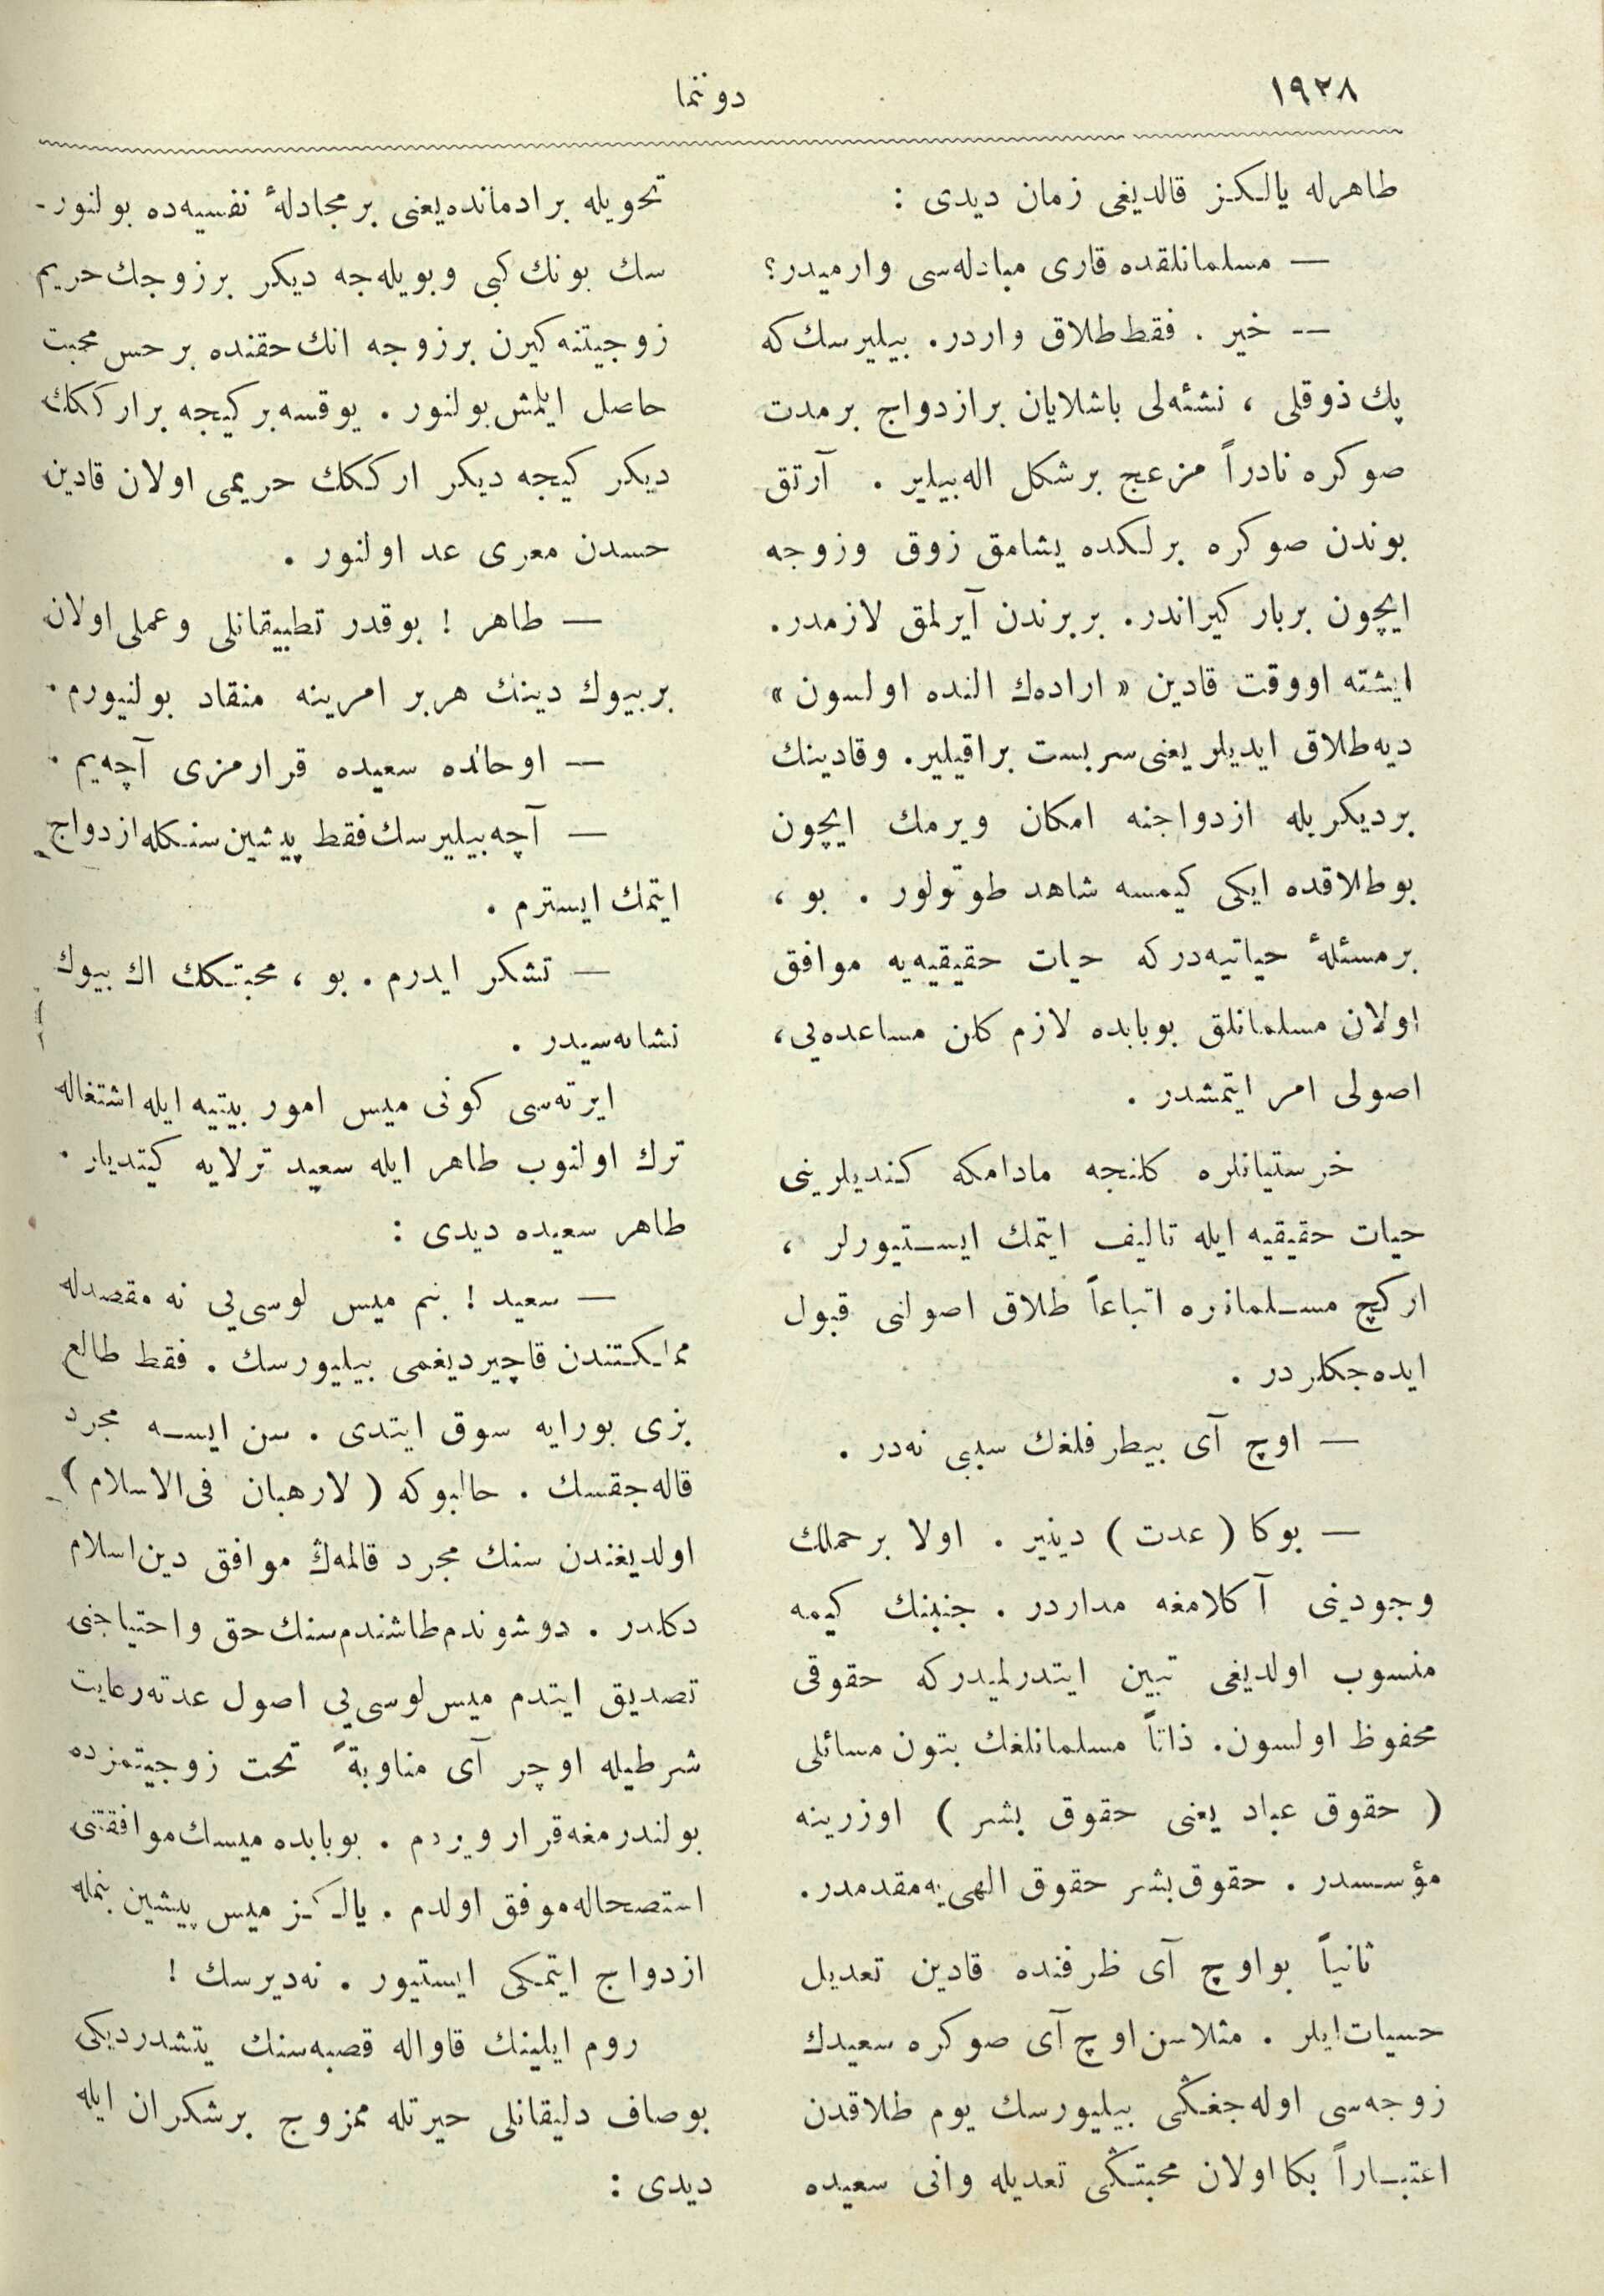 ١٩٢٨
دوننما
طاهرله يالكز قالديغى زمان ديدى :
— مسلمانلقده قارى مبادله‌سى وارميدر؟
-- خير . فقط طلاق واردر. بيليرسك كه
پك ذوقلى ، نشئه‌لى باشلايان برازدواج برمدت
صوكره نادراً مزعج برشكل اله‌بيلير . آرتق
بوندن صوكره برلكده يشامق زوق وزوجه
ايچون بربار كيراندر. بربرندن آيرلمق لازمدر.
ايشته اووقت قادين « اراده‌ك النده اولسون »
ديه طلاق ايديلر يعنى سربست براقيلير. وقادينك
برديكريله ازدواجنه امكان ويرمك ايچون
بوطلاقده ايكى كيمسه شاهد طوتولور . بو ،
برمسئلهٔ حياتيه‌دركه حيات حقيقيه‌يه موافق
اولان مسلمانلق بوبابده لازم كلن مساعده‌يى،
اصولى امر ايتمشدر .
خرستيانلره كلنجه مادامكه كنديلرينى
حيات حقيقيه ايله تاليف ايتمك ايستيورلر ،
اركچ مسلمانلره اتباعاً طلاق اصولنى قبول
ايده‌جكلردر .
— اوچ آى بيطرفلغك سببى نه‌در .
— بوكا ( عدت ) دينير . اولا برحملك
وجودينى آكلامغه مداردر . جنينك كيمه
منسوب اولديغى تبين ايتدرلميدركه حقوقى
محفوظ اولسون. ذاتاً مسلمانلغك بتون مسائلى
( حقوق عباد يعنى حقوق بشر ) اوزرينه
مؤسسدر . حقوق بشر حقوق الهى‌يه مقدمدر.
ثانياً بواوچ آى ظرفنده قادين تعديل
حسيات ايلر . مثلا سن اوچ آى صوكره سعيدك
زوجه‌سى اوله‌جغڭى بيليورسك يوم طلاقدن
اعتباراً بكا اولان محبتڭى تعديله وانى سعيده
تحويله برادمانده يعنى برمجادلهٔ نفسيه‌ده بولنور-
سك بونك كبى وبويله‌جه ديكر برزوجك حريم
زوجيتنه كيرن برزوجه انك حقنده برحس محبت
حاصل ايلمش بولنور . يوقسه بركيجه براركك
ديكر كيجه ديكر اركك حريمى اولان قادين
حسدن معرى عد اولنور .
— طاهر ! بوقدر تطبيقاتلى وعملى اولان
بربيوك دينك هربر امرينه منقاد بولنيورم.
— اوحالده سعيده قرارمزى آچه‌يم .
— آچه‌بيليرسك فقط پيشين سنكله ازدواج
ايتمك ايسترم .
— تشكر ايدرم . بو ، محبتكك اك بيوك
نشانه‌سيدر .
ايرته‌سى كونى ميس امور بيتيه ايله اشتغاله
ترك اولنوب طاهر ايله سعيد ترلايه كيتديلر .
طاهر سعيده ديدى :
— سعيد ! بنم ميس لوسى‌يى نه مقصدله
مملكتندن قاچيرديغمى بيليورسك . فقط طالع
بزى بورايه سوق ايتدى . سن ايسه مجرد
قاله‌جقسك . حالبوكه ( لارهبان فى الاسلام )
اولديغندن سنك مجرد قالمه‌ڭ موافق دين اسلام
دكلدر . دوشوندم طاشندم سنك حق واحتياجنى
تصديق ايتدم ميس لوسى‌يى اصول عدته رعايت
شرطيله اوچر آى مناوبةً تحت زوجيتمزده
بولندرمغه قرار ويردم . بوبابده ميسك موافقتنى
استصحاله موفق اولدم . يالكز ميس پيشين بنمله
ازدواج ايتمكى ايستيور . نه‌ديرسك !
روم ايلينك قاواله قصبه‌سنك يتشدرديكى
بوصاف دليقانلى حيرتله ممزوج برشكران ايله
ديدى :